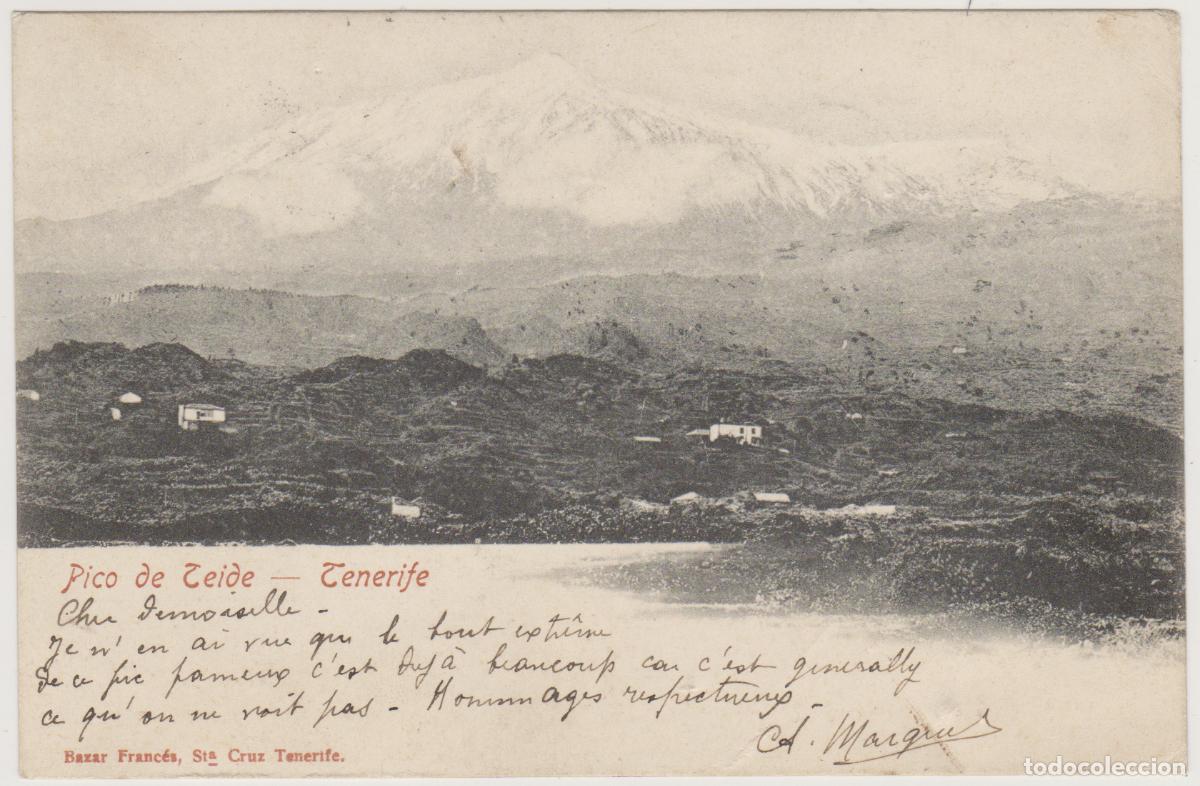 Pico de Teide — Tenerife
Cher Demoiselle -
Je n'en ai vue que le bout extrême
de ce pic fameux c'est dejà beaucoup car c'est generally
ce qu'on ne voit pas - Hommages respectueux.
Bazar Francés, Sta Cruz Tenerife.
todocoleccion